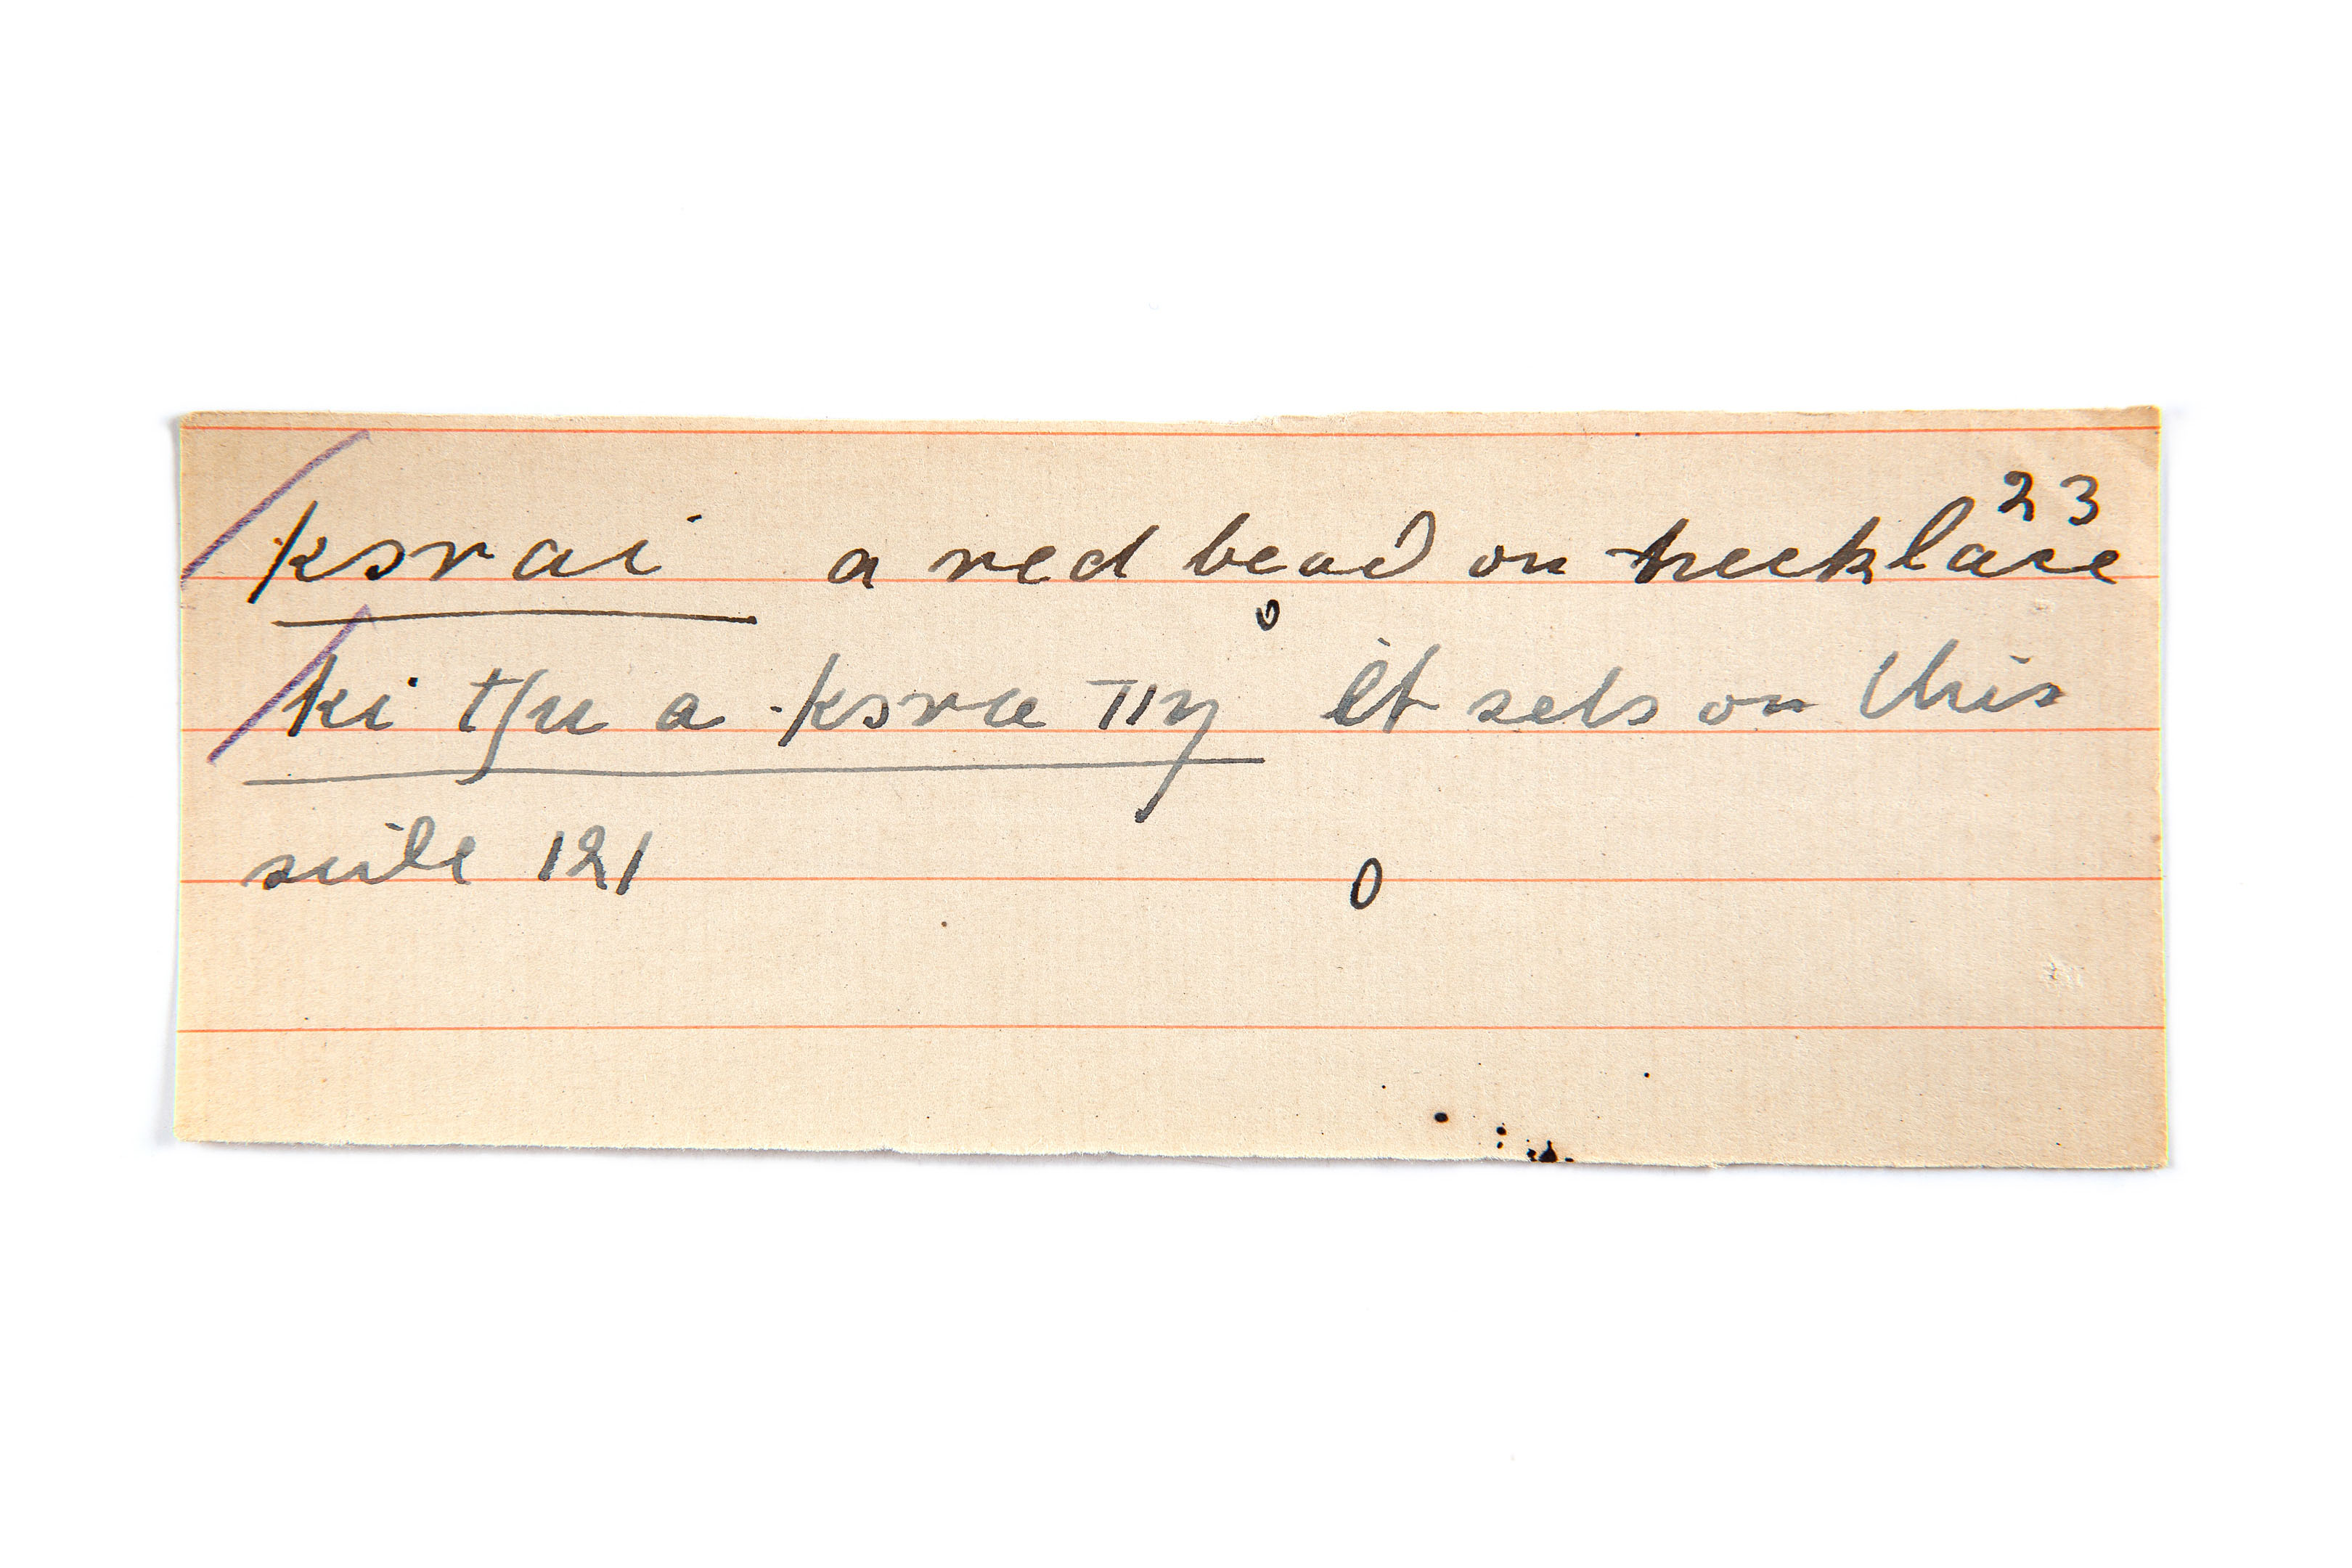 23
ksrai a red bead on necklace
o
ki tʃu a ksra πŋ it sets on this
side 121 0